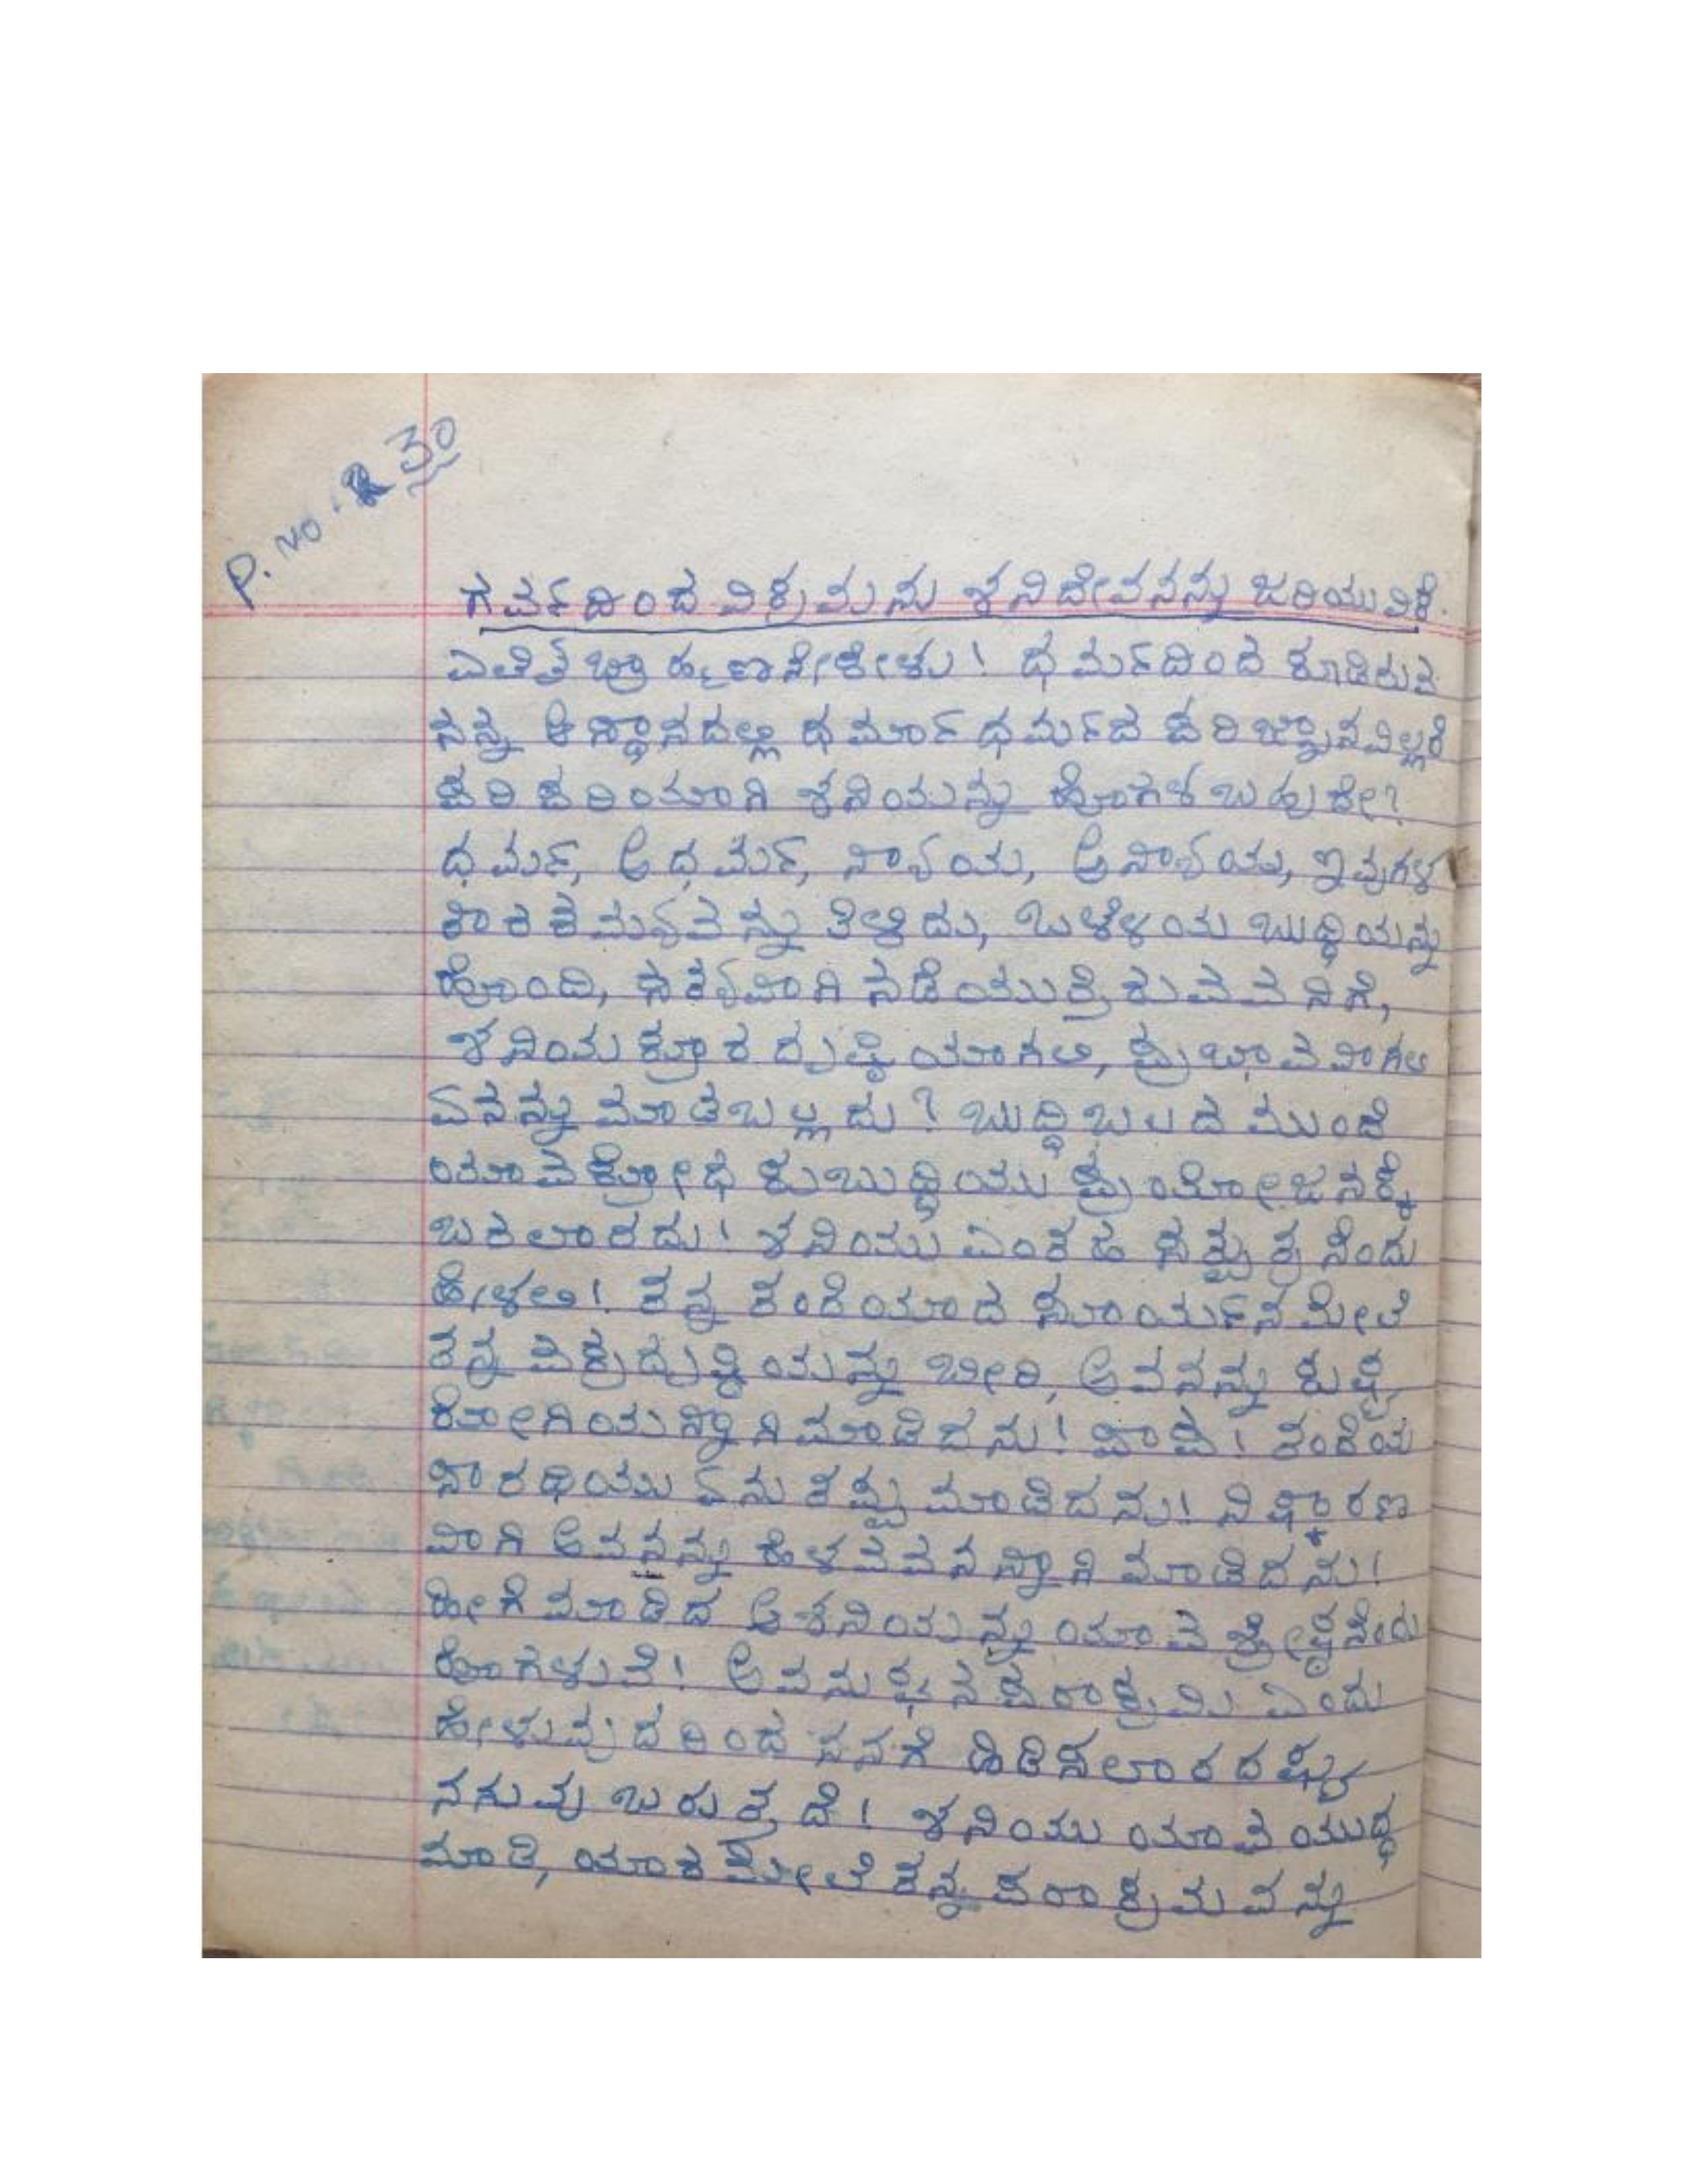 P. No. 30
ಗರ್ವದಿಂದ ವಿಕ್ರಮನು ಶನಿದೇವನನ್ನು ಜರಿಯುವಿಕೆ.
ಎಲೈ ಬ್ರಾಹ್ಮಣನೇ ಕೇಳು! ಧರ್ಮದಿಂದ ಕೂಡಿರುವ
ನನ್ನ ಆಸ್ಥಾನದಲ್ಲಿ ಧರ್ಮಾಧರ್ಮದ ಪರಿಜ್ಞಾನವಿಲ್ಲದೆ
ಪರಿಪರಿಯಾಗಿ ಶನಿಯನ್ನು ಹೊಗಳಬಹುದೇ?
ಧರ್ಮ, ಅಧರ್ಮ, ನ್ಯಾಯ, ಅನ್ಯಾಯ, ಇವುಗಳ
ತಾರತಮ್ಯವನ್ನು ತಿಳಿದು, ಒಳ್ಳೆಯ ಬುದ್ಧಿಯನ್ನು
ಹೊಂದಿ, ಸತ್ಯವಾಗಿ ನಡೆಯುತ್ತಿರುವವನಿಗೆ,
ಶನಿಯ ಕ್ರೂರ ದೃಷ್ಟಿಯಾಗಲಿ, ಪ್ರಭಾವವಾಗಲಿ
ಏನನ್ನು ಮಾಡಬಲ್ಲದು? ಬುದ್ಧಿಬಲದ ಮುಂದೆ
ಯಾವ ಕ್ರೋಧ ಕುಬುದ್ಧಿಯು ಪ್ರಯೋಜನಕ್ಕೆ
ಬರಲಾರದು! ಶನಿಯು ಎಂತಹ ಸತ್ಪುತ್ರನೆಂದು
ಹೇಳಲಿ! ತನ್ನ ತಂದೆಯಾದ ಸೂರ್ಯನ ಮೇಲೆ
ತನ್ನ ವಕ್ರದೃಷ್ಟಿಯನ್ನು ಬೀರಿ, ಅವನನ್ನು ಕುಷ್ಟ
ರೋಗಿಯನ್ನಾಗಿ ಮಾಡಿದನು! ಪಾಪ! ತಂದೆಯ
ಸಾರಥಿಯು ಏನು ತಪ್ಪು ಮಾಡಿದನು! ನಿಷ್ಕಾರಣ
ವಾಗಿ ಅವನನ್ನು ಹೆಳವವನನ್ನಾಗಿ ಮಾಡಿದನು!
ಹೀಗೆ ಮಾಡಿದ ಆ ಶನಿಯನ್ನು ಯಾವ ಶ್ರೇಷ್ಠನೆಂದು
ಹೊಗಳುವೆ! ಅವನು ಘನ ಪರಾಕ್ರಮಿ ಎಂದು
ಹೇಳುವುದರಿಂದ ನನಗೆ ಹಿಡಿಸಲಾರದಷ್ಟು
ನಗುವು ಬರುತ್ತದೆ! ಶನಿಯು ಯಾವ ಯುದ್ಧ
ಮಾಡಿ, ಯಾರ ಮೇಲೆ ತನ್ನ ಪರಾಕ್ರಮವನ್ನು